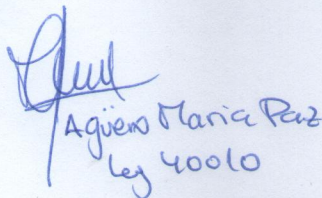 Agüero Maria Paz
Leg 40010